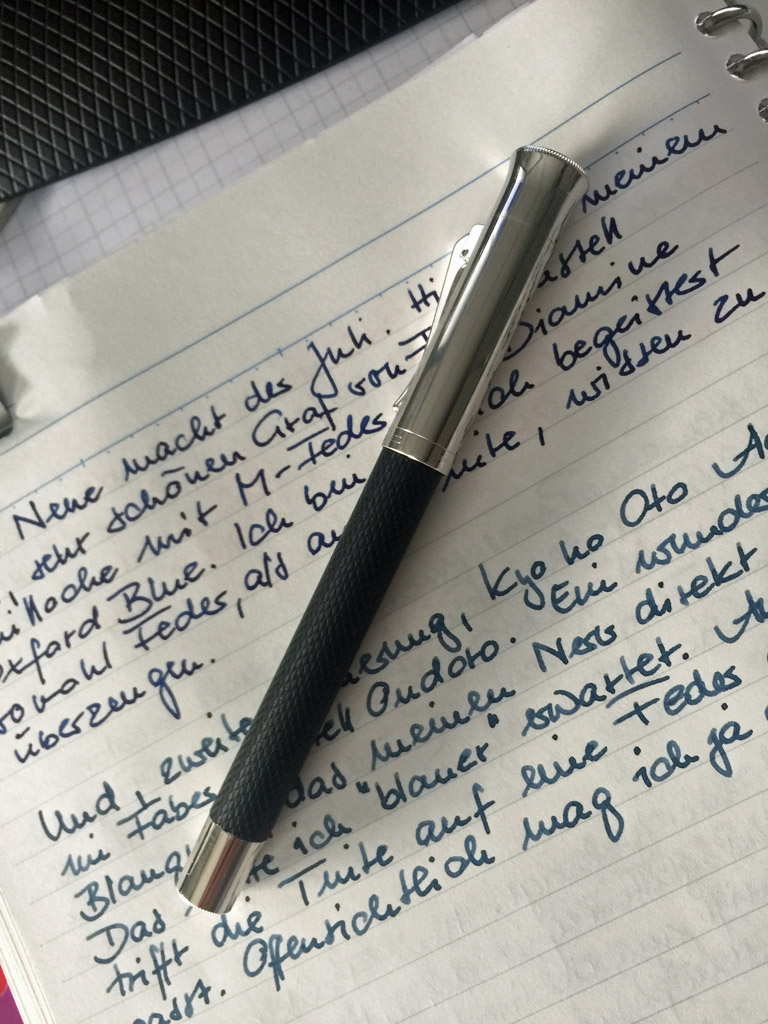 Neue macht der Juli. Hi meinem
sehr schönen Graf von F astell
mit M-Feder Diamine
Oxford Blue. Ich bin ich begeistert
sowohl Feder, als au inte, wissen zu
überzeugen.
Und, zweite esung, Kyo no Oto
im Faber ell Ondoro. Ein wunder
Blaug das meinem Nerv direkt
Das te ich "blauer" erwartet.
trifft die Tinte auf eine Feder
passt. Offensichtlich mag ich ja